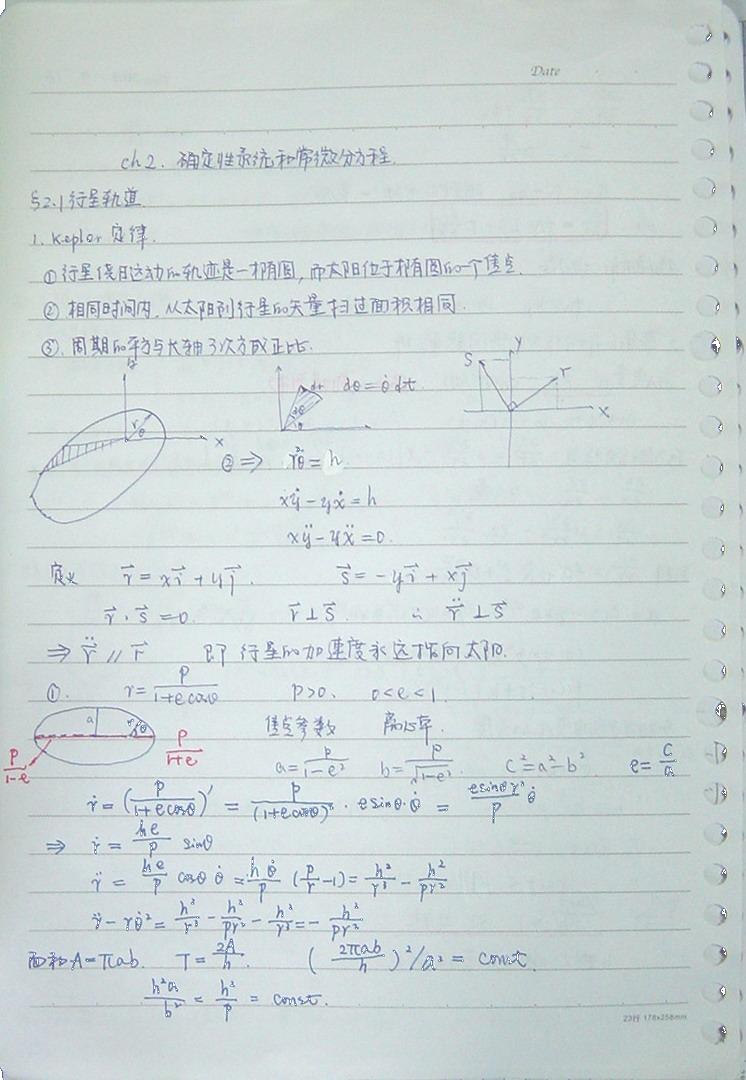 Date
ch2. 确定性系统和常微分方程.
§2.1 行星轨道
1. Kepler 定律.
① 行星绕日运动的轨迹是一椭圆, 而太阳位于椭圆的一个焦点.
② 相同时间内, 从太阳到行星的矢量扫过面积相同.
③. 周期的平方与长轴3次方成正比.
y
r
θ
x
dr dθ = θ̇ dt
dθ
θ
S y r
x
② ⇒ r²θ̇ = h
xẏ - yẋ = h
xÿ - yẍ = 0.
定义 r⃗ = xi⃗ + yj⃗. s⃗ = -yi⃗ + xj⃗
r⃗ · s⃗ = 0. r⃗ ⊥ s⃗. ∴ r⃗̈ ⊥ s⃗
⇒ r⃗̈ // r⃗ 即 行星的加速度永远指向太阳.
①. r = p/(1+ecosθ) p>0、 0<e<1.
a r θ
p/(1-e) p/(1+e)
焦点参数 离心率.
a = p/(1-e²) b = p/√(1-e²). c² = a² - b² e = c/a
ṙ = (p/(1+ecosθ))' = p/(1+ecosθ)² · esinθ·θ̇ = esinθ r²/p θ̇
⇒ ṙ = he/p sinθ
r̈ = he/p cosθ θ̇ = hθ̇/p (p/r -1) = h²/r³ - h²/pr²
r̈ - rθ̇² = h²/r³ - h²/pr² - h²/r³ = - h²/pr²
面积 A = πab. T = 2A/h. (2πab/h)²/a³ = const.
h²a/b² = h²/p = const.
23行 178x258mm